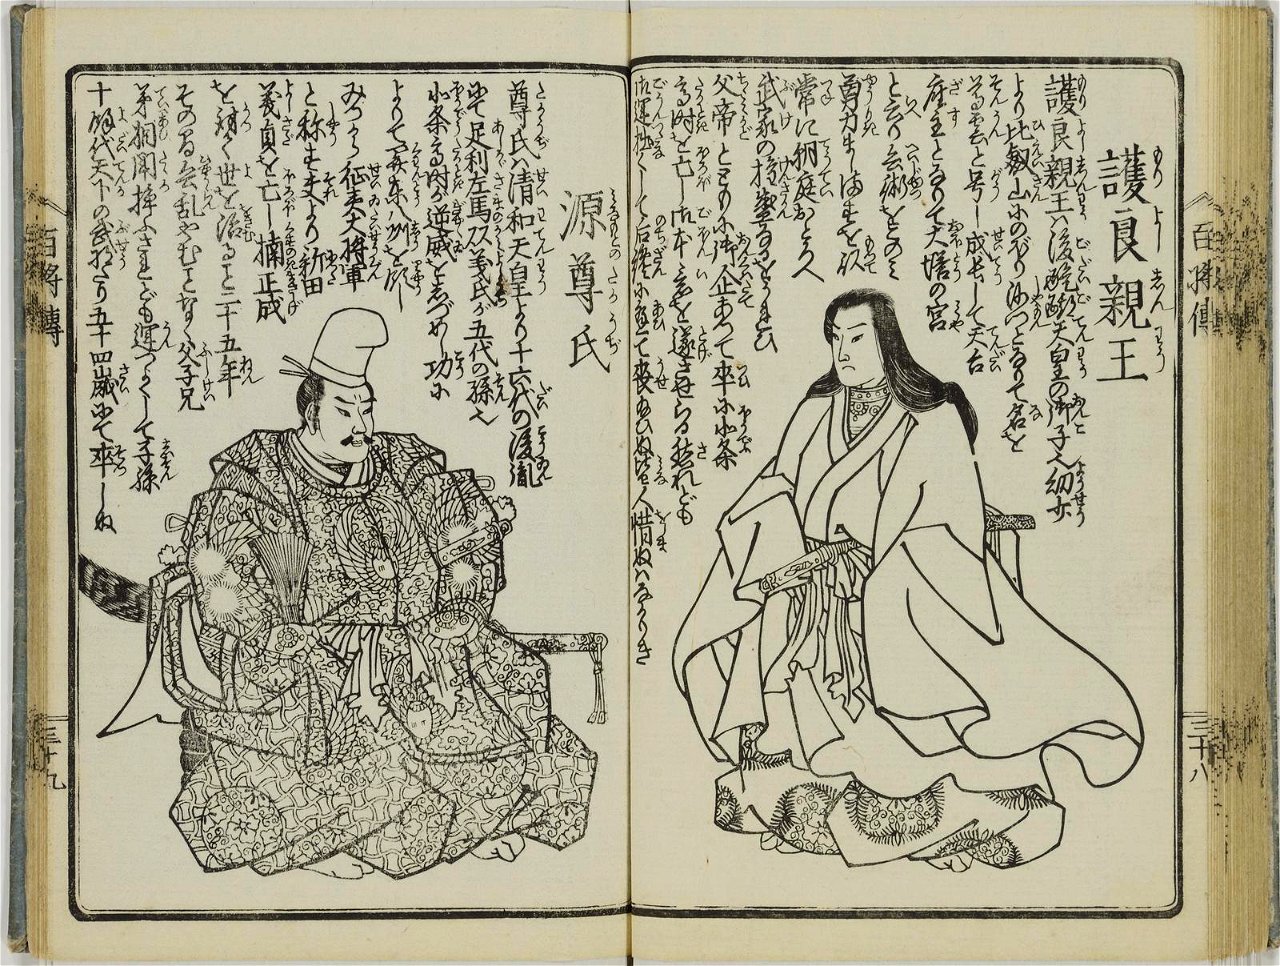 百将傳
三十八
護良親王
護良親王ハ後醍醐天皇の御子也幼少
より比叡山にのぼり沙門となりて名を
尊雲と号し成長して天台
座主となりて大塔の宮
と云り兵術をこのミ
勇力ましますを以
常に朝庭おとろへ
武家の権盛なるをうれひ
父帝とともに御企あつて卒に北条
高時を亡し御本意を遂させらる然れども
御運拙くして后讒に逢て喪給ひぬ皆人惜ぬハなかりき
源尊氏
尊氏ハ清和天皇より十六代の後胤
にて足利左馬頭義氏が五代の孫也
北条高時が逆威をしづめし功に
よりて関東八州を領し
みづから征夷大将軍
と称す夫より新田
義貞を亡し楠正成
を討て世を治ること二十五年
その間兵乱やむことなく父子兄
弟 されども運つよくして子孫
十余代天下の武将たり五十四歳にて卒しぬ
百将傳
三十九